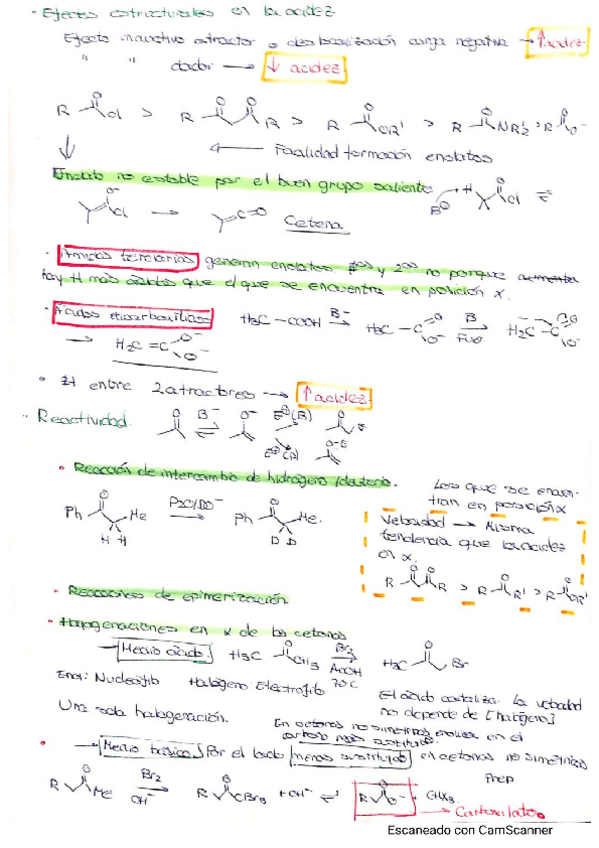 · Efectos estructurales en la acidez
Efecto inductivo atractor o deslocalización carga negativa → ↑acidez
" " dador → ↓ acidez
R Cl > R R > R OR' > R NR2' > R O-
← Facilidad formación enolatos
Enolato no estable por el buen grupo saliente
B⊖ H Cl ⇌
Cl → C=O Cetena
· Amidas terciarias generan enolatos 1as y 2as no porque
hay H más ácidos que el que se encuentra en posición α.
· Ácidos monocarboxílicos H3C-COOH B- → H3C-C O O- B Fue H2C-C O O-
→ H2C=C O- O-
· H entre 2 atractores → ↑ acidez
·· Reactividad O B- ⇌ O- E⊕(B) O E
E⊕(A) O-E
· Reacción de intercambio de hidrógeno/deuterio.
Los que se encuen-
tran en posición α
Ph Me H H D2O/DO- → Ph Me. D D
Velocidad → Misma
tendencia que la acidez
en α.
R R > R R' > R OR'
· Reacciones de epimerización.
· Halogenaciones en α de las cetonas
→ Medio ácido. H3C CH3 Br2 AcOH 70ºC H3C Br
Enol: Nucleófilo Halógeno Electrófilo
El ácido cataliza. La velocidad
no depende de [halógeno]
Una sola halogenación.
En cetonas no simétricas enoliza en el
carbono más sustituido.
· → Medio básico Por el lado menos sustituido en cetonas no simétricas
R Me Br2 OH- → R CBr3 + OH- ⇌ R O- + CHX3.
→ Carboxilato
Escaneado con CamScanner